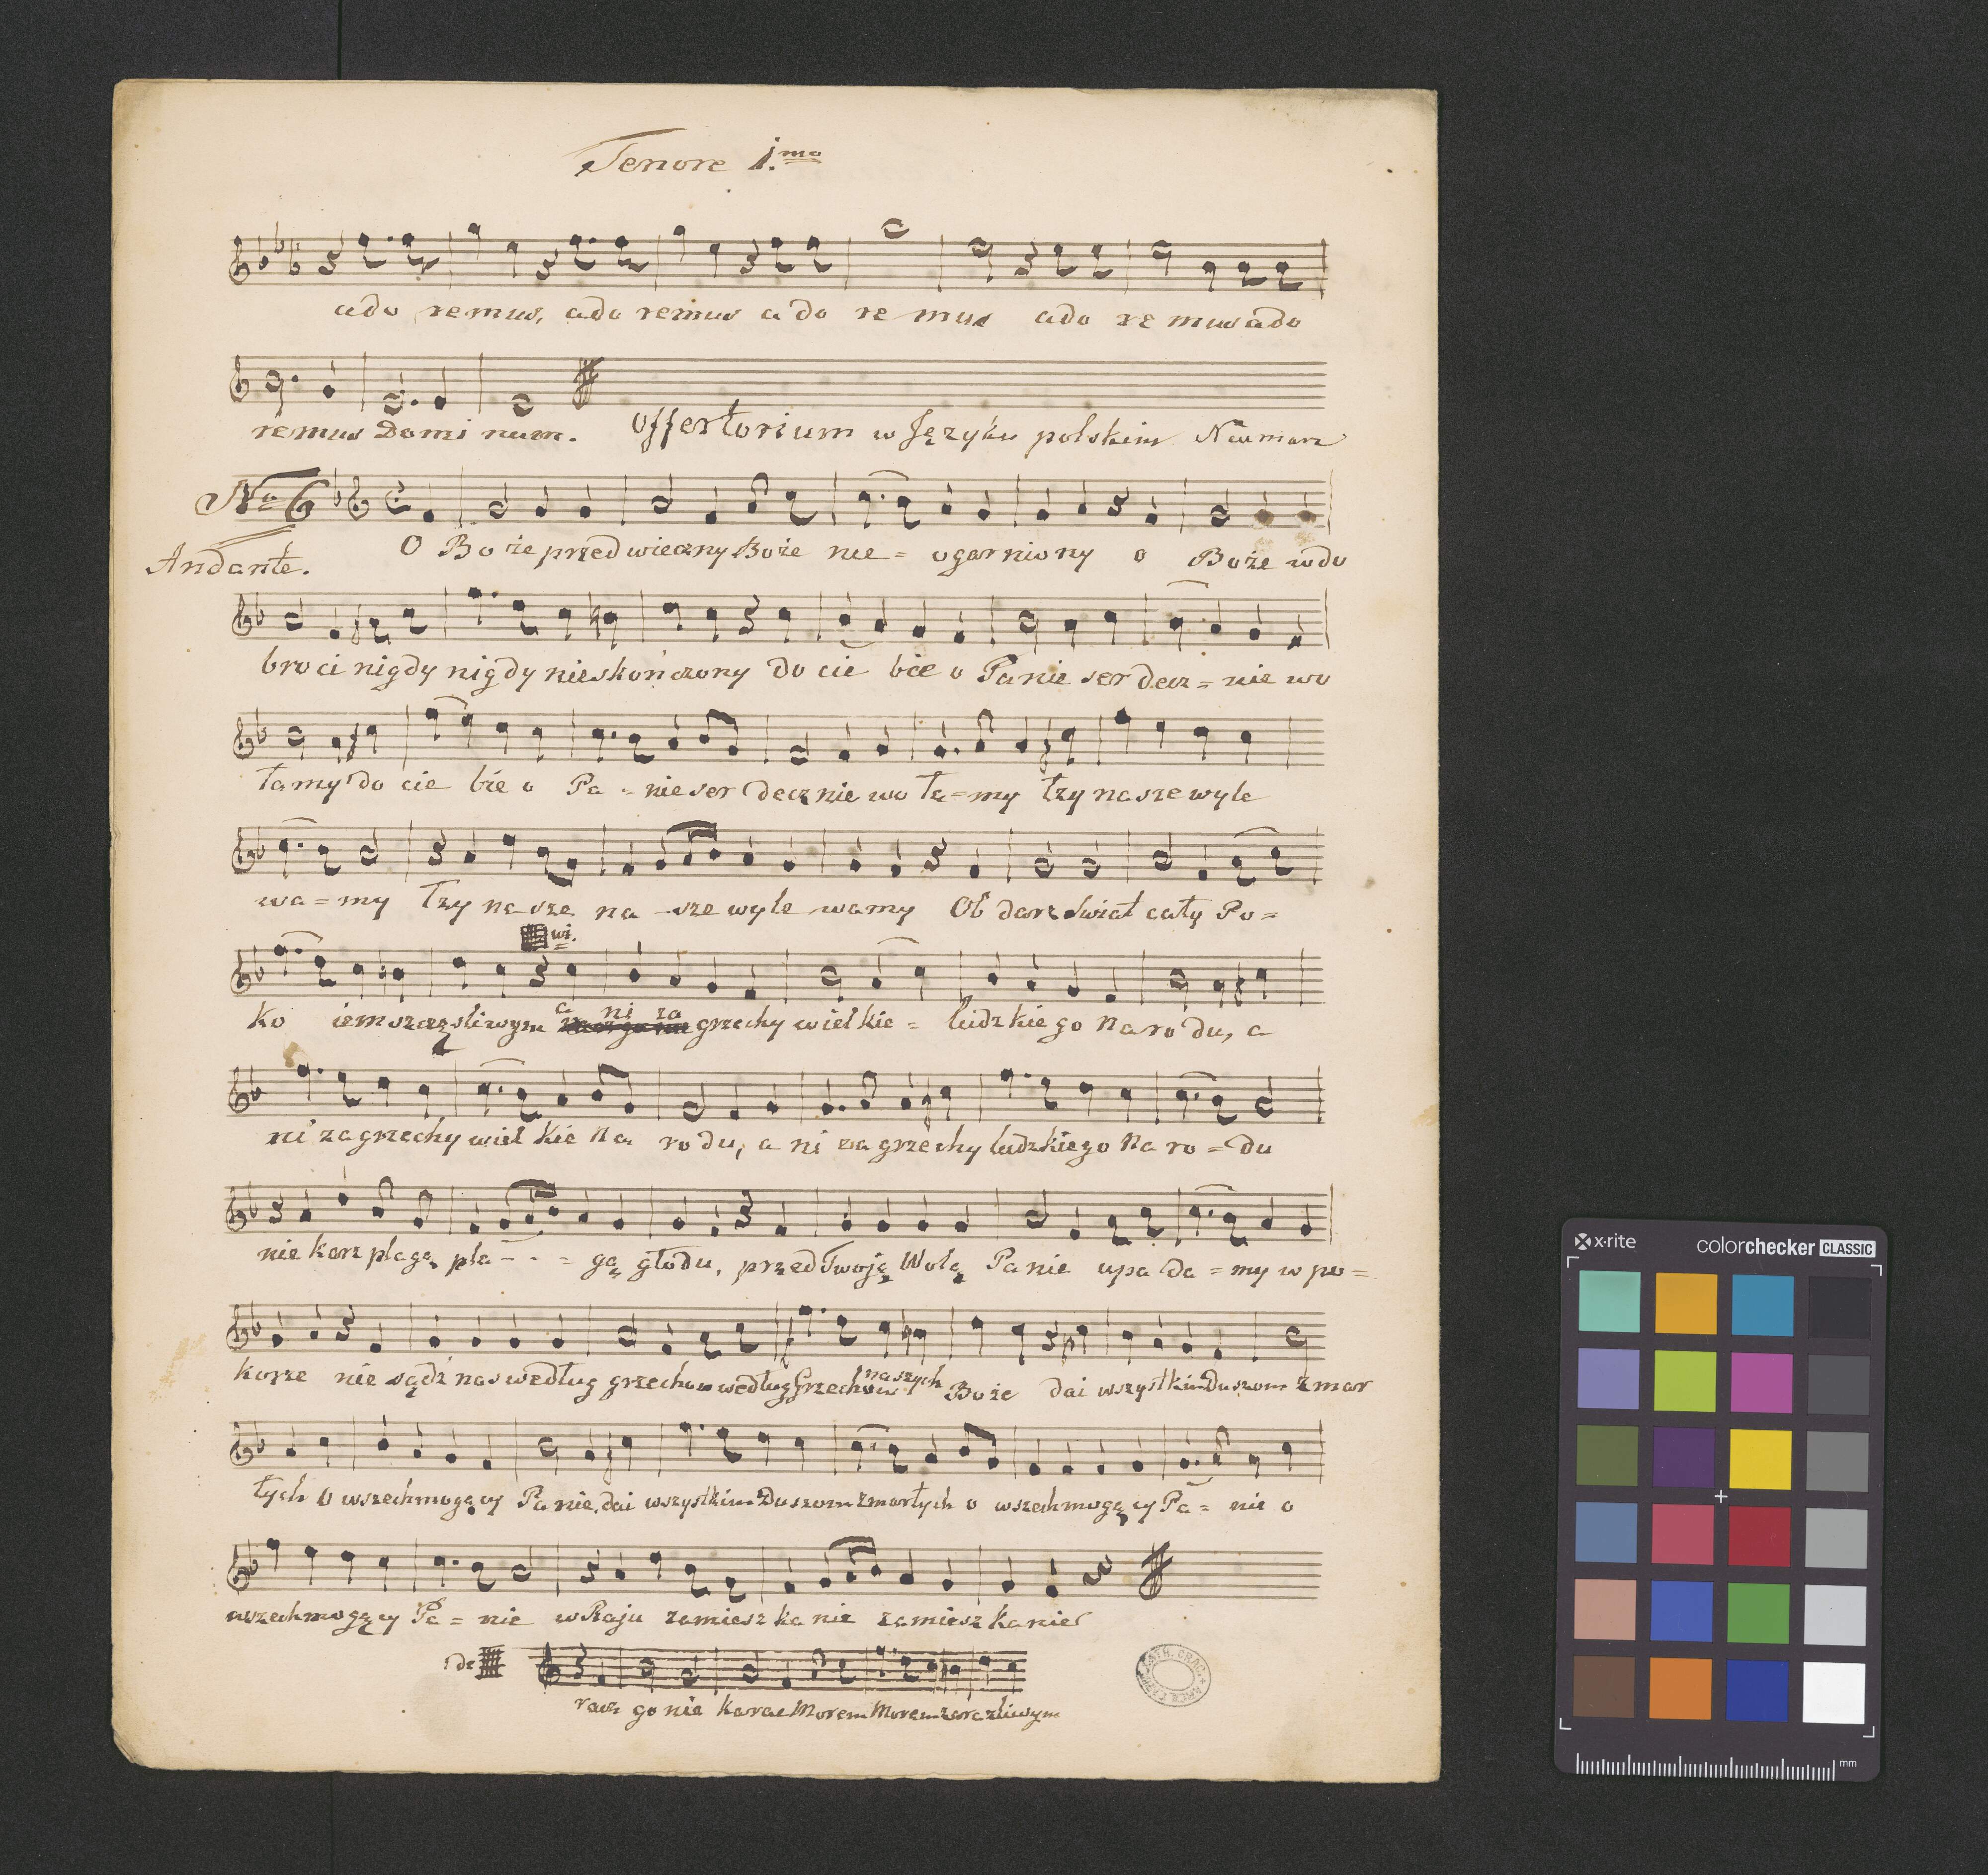 Tenore 1.mo
ado remus, ado remus a do re mus ado re mus ado
remus Domi num. Offertorium w Języku polskim
No 6
Andante.
O Boże przedwieczny Boże nie = ogarniony o Boże w do
broci nigdy nigdy nieskończony do cie bie o Panie ser decz = nie wo
łamy do cie bie o Pa - nie ser decznie wo ła = my łzy nasze wyle
wa = my łzy na sze na - sze wyle wamy Ob darz świat cały Po =
wi.
ko iem szczęsliwym a ni za grzechy wielkie = ludzkie go na ro du, a
ni za grzechy wiel kie na ro du, a ni za grzechy ludzkiego na ro = du
nie karz plagą, pla - - = gą głodu, przed Twoją Wolą Pa nie upa da = my w po =
korze nie sądź nas według grzechow według Grzechow naszych Boże dai wszystkim Duszom zmar
łych o wszechmogący Panie, dai wszystkim Duszom zmarłych o wszechmogący Pa = nie o
wszechmogący Pa = nie w Raju zamiesz ka nie zamiesz kanie
go nie karae Morem Morem zarazliwym
x·rite colorchecker CLASSIC
mm